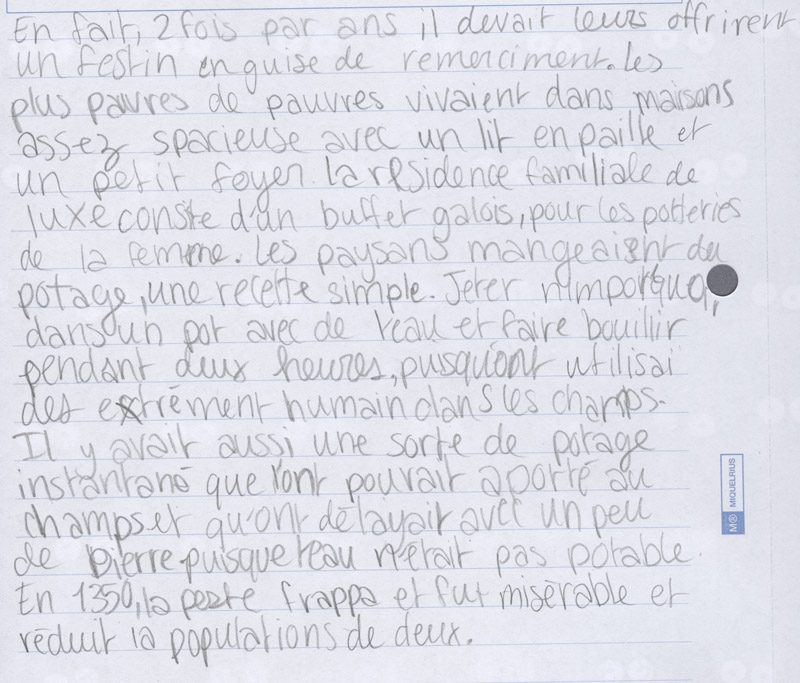 En fait, 2 fois par ans, il devait leurs offrirent
un festin en guise de remerciment. Les
plus pauvres de pauvres vivaient dans maisons
assez spacieuse avec un lit en paille et
un petit foyer. La résidence familiale de
luxe conste d'un buffet galois, pour les potteries
de la femme. Les paysans mangeaient du
potage, une recette simple. Jeter n'importquoi,
dans un pot avec de l'eau et faire bouillir
pendant deux heures, pusqu'ont utilisai
des extrément humain dans les champs.
Il y avait aussi une sorte de potage
instantané que l'ont pouvait aporté au
champs et qu'ont délayait avec un peu
de bierre puisque l'eau n'était pas potable.
En 1350, la peste frappa et fut misérable et
réduit la populations de deux.
M® MIQUELRIUS